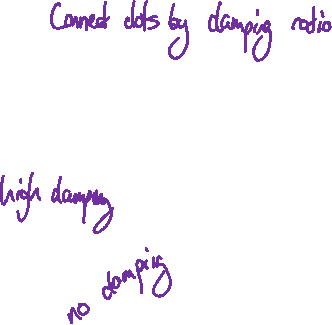 Connect dots by damping ratio
high damping
no damping